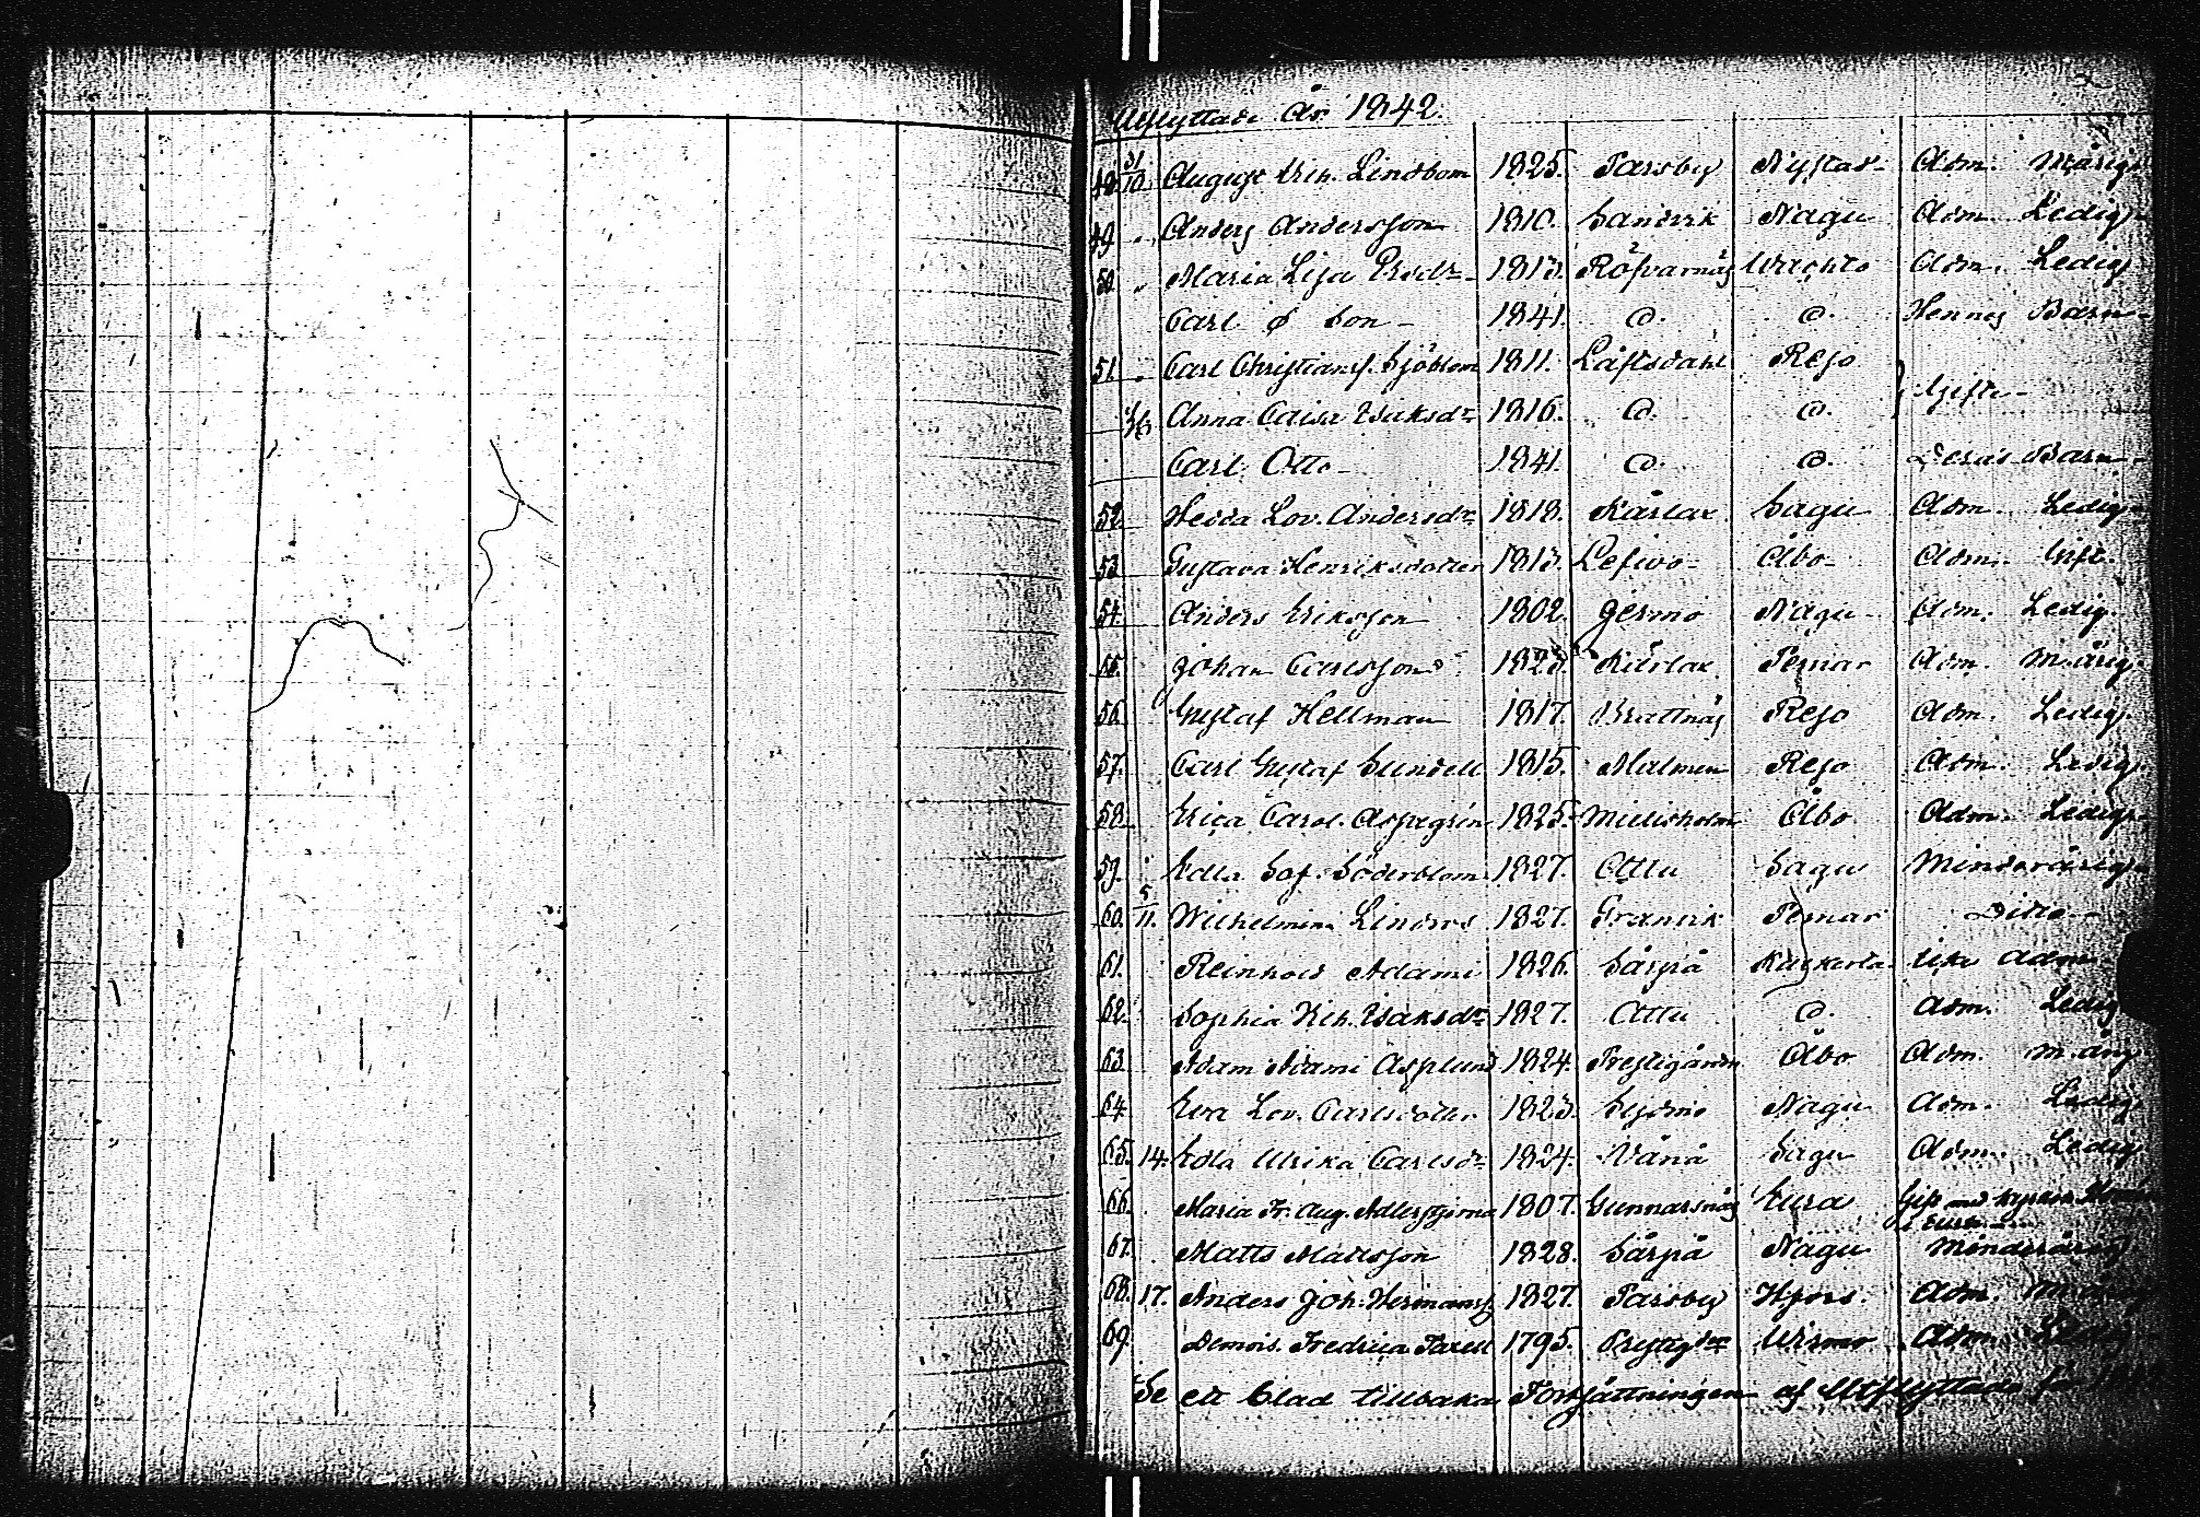 Utflyttade År 1842.
48. 31/10 August Wih. Lindbom 1825. Parsby Nystad Adm. M.årig.
49. " Anders Andersson 1810. Sandvik Nagu Adm. Ledig.
50. " Maria Lisa 1813. Röfvarnäs Adm. Ledig
Carl son 1841. d. d. Hennes Barn
51. " Carl Christianss. Sjöblom 1811. Läftsdahl Reso
Anna Caisa Isaksdr 1816. d. d. } Gifte
Carl Otto 1841. d. d. Deras Barn
52. Hedda Lov. Andersdr 1818. Kärlax Sagu Adm. Ledig.
53. Gustava Henriksdotter 1813. Lefwo Åbo Adm. Gift.
54. Anders Eriksson 1802. Jermo Nagu Adm. Ledig.
55. Johan Carlsson 1823. Kärlax Pemar Adm. M.årig.
56. Gustaf Hellman 1817. Brattnäs Reso Adm. Ledig.
57. Carl Gustaf Sundell 1815. Malmen Reso Adm. Ledig.
58. Erica Carol. Aspegrén 1825. Mielisholm Åbo Adm. Ledig.
59. Edla Sof. Söderblom 1827. Attu Sagu Minderårig
60. 5/11. Wilhelmina Lindros 1827. Granvik Pemar Ditto
61. Reinhold Adami 1826. Särpå Adm.
62. Sophia Isaksdr 1827. Attu d. Adm. Ledig
63. Adam Adami Asplund 1824. Prestgården Åbo Adm. M.årig
64. Eva Lov. Carlsdotter 1823. Sydmo Nagu Adm. Ledig
65. 14. Edla Ulrika Carlsdr 1824. Vånå Sagu Adm. Ledig
66. Maria Fr. Aug. Adlerstjerna 1807. Gunnarsnäs Eura Gift med
i Eura
67. Matts Mattsson 1828. Särpå Nagu Minderårig
68. 17. Anders Joh. Hermanss. 1827. Parsby Adm.
69. Demois. Fredrica 1795. Wirmo Adm.
Se ett blad tillbaka Fortsättningen af Utflyttade för